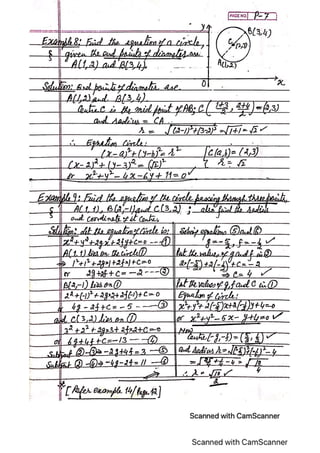 PAGE NO. P-7
Example 8: Find the equation of a circle,
given the end points of diameter are
A(1,2) and B(3,4).
Y
B(3,4)
C(2,3)
A(1,2)
O
x
Solution: End points of diameter are
A(1,2) and B(3,4).
Centre C is the mid point of AB; C(1+3/2, 2+4/2) = (2,3)
and radius = CA
r = √(2-1)²+(3-2)² = √1+1 = √2 ✓
∴ Equation Circle:
(x-a)²+(y-b)² = r²
C(a,b) = (2,3)
(x-2)²+(y-3)² = (√2)²
r = √2
or x²+y²-4x-6y+11=0 ✓
Example 9: Find the equation of the circle passing through three points
A(1,1), B(2,-1) and C(3,2); also find the radius
and coordinates of its centre.
Solution: Let the equation of Circle is:
x²+y²+2gx+2fy+C=0 --- ①
A(1,1) lies on the circle ①
⇒ 1²+1²+2g×1+2f×1+C=0
or 2g+2f+C=-2 --- ②
B(2,-1) lies on ①
2²+(-1)²+2g×2+2f(-1)+C=0
or 4g-2f+C=-5 --- ③
and C(3,2) lies on ①
3²+2²+2g×3+2f×2+C=0
or 6g+4f+C=-13 --- ④
Subtract ②-③⇒-2g+4f=3 --⑤
Subtract ②-④⇒-4g-2f=11 --⑥
Solving equations ⑤ and ⑥
g=-5/2, f=-1/2 ✓
Put the value of g and f in ②
2(-5/2)+2(-1/2)+C=-2
⇒ C=4 ✓
Put the values of g, f and C in ①
Equation of Circle:
x²+y²+2(-5/2)x+2(-1/2)y+4=0
or x²+y²-5x-y+4=0 ✓
Now
Centre(-g,-f)=(5/2, 1/2) ✓
and Radius r=√(-5/2)²+(-1/2)²-4
=√25/4+1/4-4 = √10/4
∴ r = √10/2 ✓
[Refer example 14/Page 12]
Scanned with CamScanner
Scanned with CamScanner